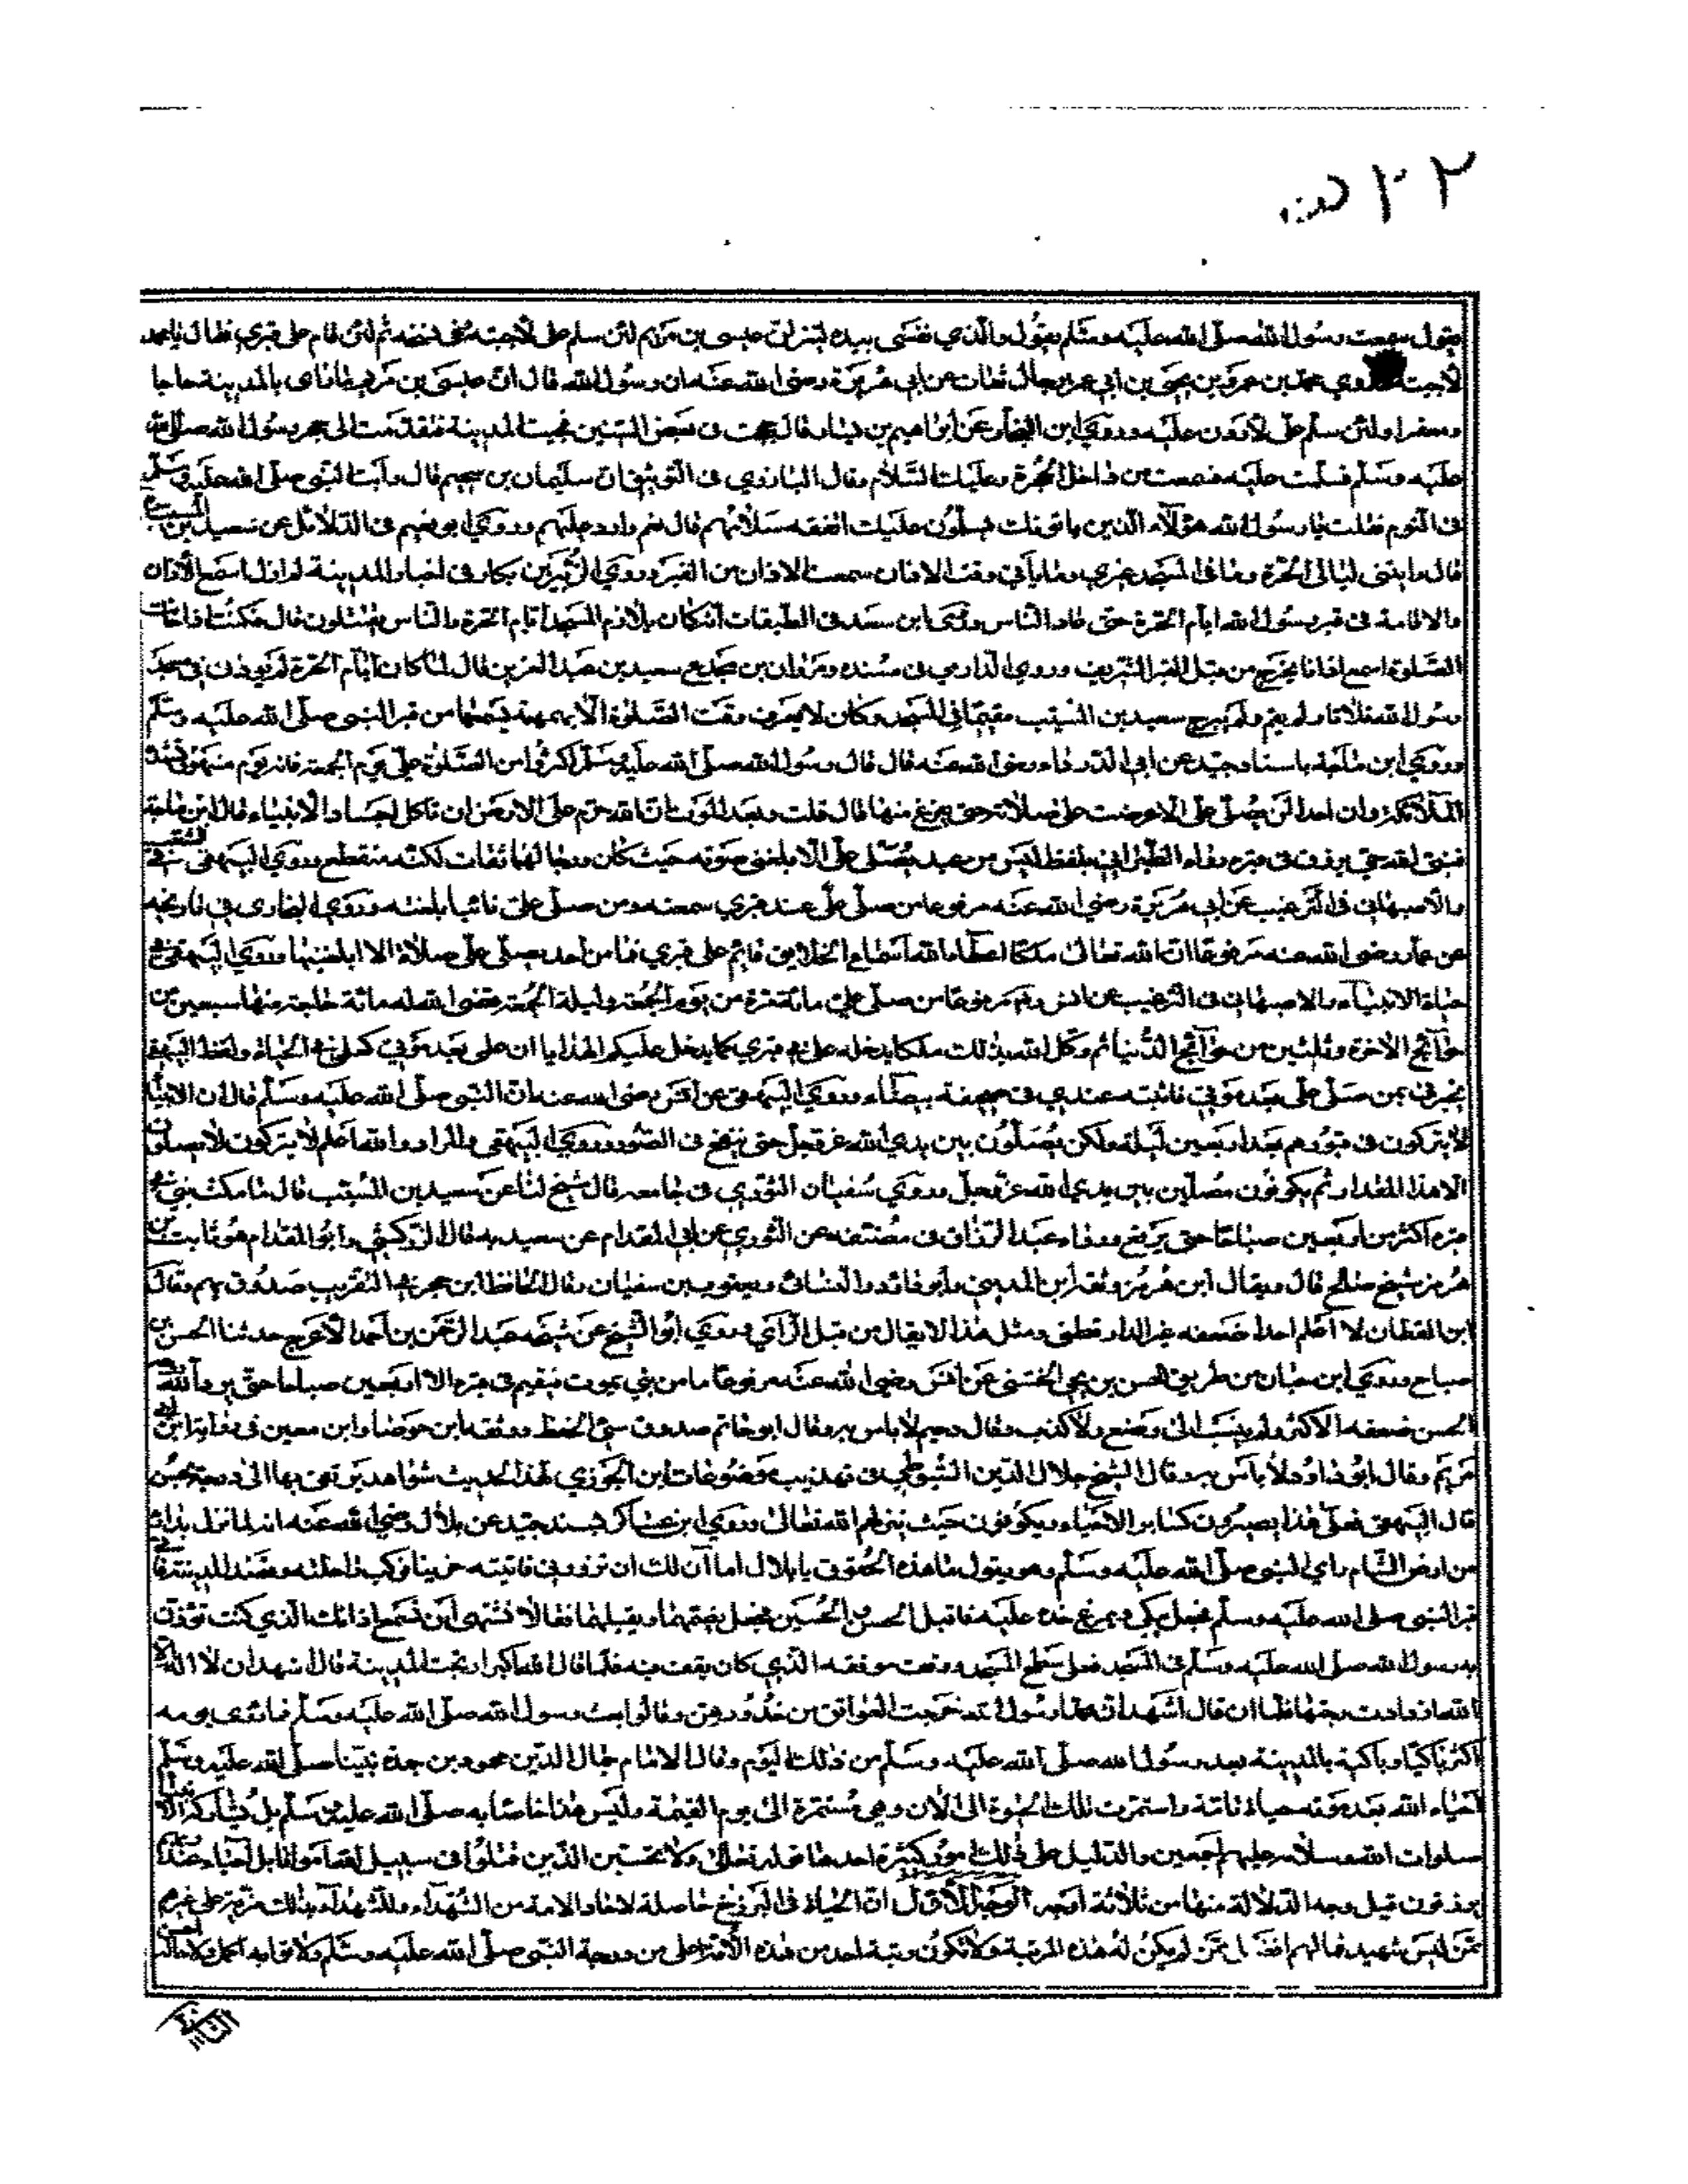 يقول سمعت رسول الله صلى الله عليه وسلم يقول والذي نفسي بيده لينزلن عيسى بن مريم لئن سلم علي لأجبته ثم لئن قام على قبري فقال يا محمد
لأجبته وروي محمد بن عمرو بن يحيى بن أبي عمر برجال ثقات عن أبي هريرة رضي الله عنه ان رسول الله قال ان عيسى بن مريم بالمدينة حاجا
ومعتمرا ولئن سلم علي لأردن عليه وروى ابن النجار عن ابراهيم بن بشار قال حججت في بعض السنين فجئت المدينة فتقدمت الى قبر رسول الله صلى الله
عليه وسلم فسلمت عليه فسمعت من داخل الحجرة وعليك السلام وقال البارزي في التوثيق ان سليمان بن سحيم قال رأيت النبي صلى الله عليه وسلم
في النوم فقلت يا رسول الله هؤلاء الذين يأتونك فيسلمون عليك اتفقه سلامهم قال نعم وارد عليهم وروى ابو نعيم في الدلائل عن سعيد بن المسيب
قال رايتني ليالي الحرة وما في المسجد غيري وما يأتي وقت الاذان سمعت الاذان من القبر وروى الزبير بن بكار في اخبار المدينة لم ازل اسمع الأذان
والاقامة في قبر رسول الله ايام الحرة حتى عاد الناس وروى ابن سعد في الطبقات أنه كان يلازم المسجد أيام الحرة والناس يقتتلون قال فكنت اذا حانت
الصلوة اسمع اذانا يخرج من قبل القبر الشريف وروى الدارمي في مسنده ومروان بن محمد عن سعيد بن عبد العزيز قال لما كان أيام الحرة لم يوذن في مسجد
رسول الله ثلاثا ولم يقم ولم يبرح سعيد بن المسيب مقيما في المسجد وكان لا يعرف وقت الصلوة الا بهمهمة يسمعها من قبر النبي صلى الله عليه وسلم
وروى ابن ماجة باسناد جيد عن ابي الدرداء رضي الله عنه قال قال رسول الله صلى الله عليه وسلم أكثروا من الصلوة علي يوم الجمعة فانه يوم مشهود تشهده
الملائكة وان احدا لن يصلي علي الا عرضت علي صلاته حتى يفرغ منها قال قلت وبعد الموت قال ان الله حرم على الارض ان تاكل اجساد الانبياء قال ابن ماجة
فنبي الله حي يرزق في قبره ورواه الطبراني بلفظ ليس من عبد يصلي علي الا بلغني صوته حيث كان ورجالهما ثقات لكنه منقطع وروى البيهقي في الشعب
والأصبهاني في الترغيب عن ابي هريرة رضي الله عنه مرفوعا من صلى علي عند قبري سمعته ومن صلى علي نائيا بلغته وروى البخاري في تاريخه
عن عمار رضي الله عنه مرفوعا ان الله تعالى ملكا اعطاه الله أسماع الخلايق قائم على قبري فما من أحد يصلي علي صلاة الا ابلغنيها وروى البيهقي في
حياة الانبياء والاصبهاني في الترغيب عن انس رفعه مرفوعا من صلى علي مائة مرة من يوم الجمعة وليلة الجمعة قضى الله له مائة حاجة منها سبعين من
حوآئج الاخرة وثلثين من حوآئج الدنيا ثم وكل الله بذلك ملكا يدخله علي في قبري كما يدخل عليكم الهدايا ان علمي بعد موتي كعلمي في الحياة ولفظ البيهقي
يخبرني بمن صلى علي بعد موتي فاثبته عندي في صحيفة بيضاء وروى البيهقي عن انس رضي الله عنه ان النبي صلى الله عليه وسلم قال ان الانبياء
لا يتركون في قبورهم بعد اربعين ليلة ولكن يصلون بين يدي الله عز وجل حتى ينفخ في الصور وروى البيهقي والمراد والله اعلم لا يتركون لا يصلون
الا هذا المقدار ثم يكونون مصلين بين يدي الله عز وجل وروى سفيان الثوري في جامعه قال شيخ لنا عن سعيد بن المسيب قال ما مكث نبي في
قبره اكثر من اربعين صباحا حتى يرفع ورواه عبد الرزاق في مصنفه عن الثوري عن ابي المقدام عن سعيد به قال الزركشي وابو المقدام هو ثابت بن
هرمز شيخ صالح قال ويقال ابن هريمز وثقه ابن المديني وأبو داود والنسائي ويعقوب بن سفيان وقال الحافظ ابن حجر في التقريب صدوق يهم وقال
ابن القطان لا اعلم احدا ضعفه غير الدارقطني ومثل هذا لا يقال من قبل الرأي وروى ابو الشيخ عن شيخه عبد الرحمن بن احمد الاعرج حدثنا الحسن بن
صباح وروى ابن حبان من طريق الحسن بن يحيى الخشني عن انس رضي الله عنه مرفوعا ما من نبي يموت فيقيم في قبره الا اربعين صباحا حتى يرد الله
الحسن ضعفه الاكثر ولم ينسب الى وضع ولا كذب وقال دحيم لا باس به وقال ابو حاتم صدوق سيئ الحفظ ووثقه ابن معين في رواية ابن أبي
مريم وقال ابو داود لا بأس به وقال الشيخ جلال الدين السيوطي في تهذيب موضوعات ابن الجوزي لهذا الحديث شواهد يرتقي بها الى درجة الحسن
قال البيهقي فعلى هذا يصيرون كسائر الاحياء ويكونون حيث ينزلهم الله تعالى وروى ابن عساكر بسند جيد عن بلال رضي الله عنه انه لما نزل بداريا
من ارض الشام راى النبي صلى الله عليه وسلم وهو يقول ما هذه الجفوة يا بلال اما آن لك ان تزورني فانتبه حزينا فركب راحلته وقصد المدينة فأتى
قبر النبي صلى الله عليه وسلم فجعل يبكي ويمرغ خده عليه فاقبل الحسن والحسين فجعل يضمهما ويقبلهما فقالا نشتهي أن نسمع اذانك الذي كنت تؤذن
به رسول الله صلى الله عليه وسلم في المسجد فعلى سطح المسجد ووقف موقفه الذي كان يقف فيه فلما قال الله اكبر ارتجت المدينة فلما قال اشهد ان لا اله الا
الله ازدادت رجتها فلما ان قال اشهد ان محمدا رسول الله خرجت العواتق من خدورهن وقالوا بعث رسول الله صلى الله عليه وسلم فما رئي يوم
اكثر باكيا وباكية بالمدينة بعد رسول الله صلى الله عليه وسلم من ذلك اليوم وقال الامام جمال الدين محمود بن جملة نبينا صلى الله عليه وسلم
احياه الله بعد موته حياة تامة واستمرت تلك الحيوة الى الآن وهي مستمرة الى يوم القيمة وليس هذا خاصا به صلى الله عليه وسلم بل يشاركه الانبياء
صلوات الله وسلامه عليهم اجمعين والدليل على ذلك أمور كثيرة احدها قوله تعالى ولا تحسبن الذين قتلوا في سبيل الله أمواتا بل أحياء عند ربهم
يرزقون قيل وجه الدلالة منها من ثلاثة اوجه الوجه الأول ان الحياة في البرزخ حاصلة لاحاد الامة من الشهداء وللشهداء بذلك مزية على غيرهم
ممن ليس شهيد فحالهم افضل ممن لم يكن له هذه المرتبة ولا تكون رتبة احد من هذه الأمة اعلى من درجة النبي صلى الله عليه وسلم ولا ثوابه اكمل ولا